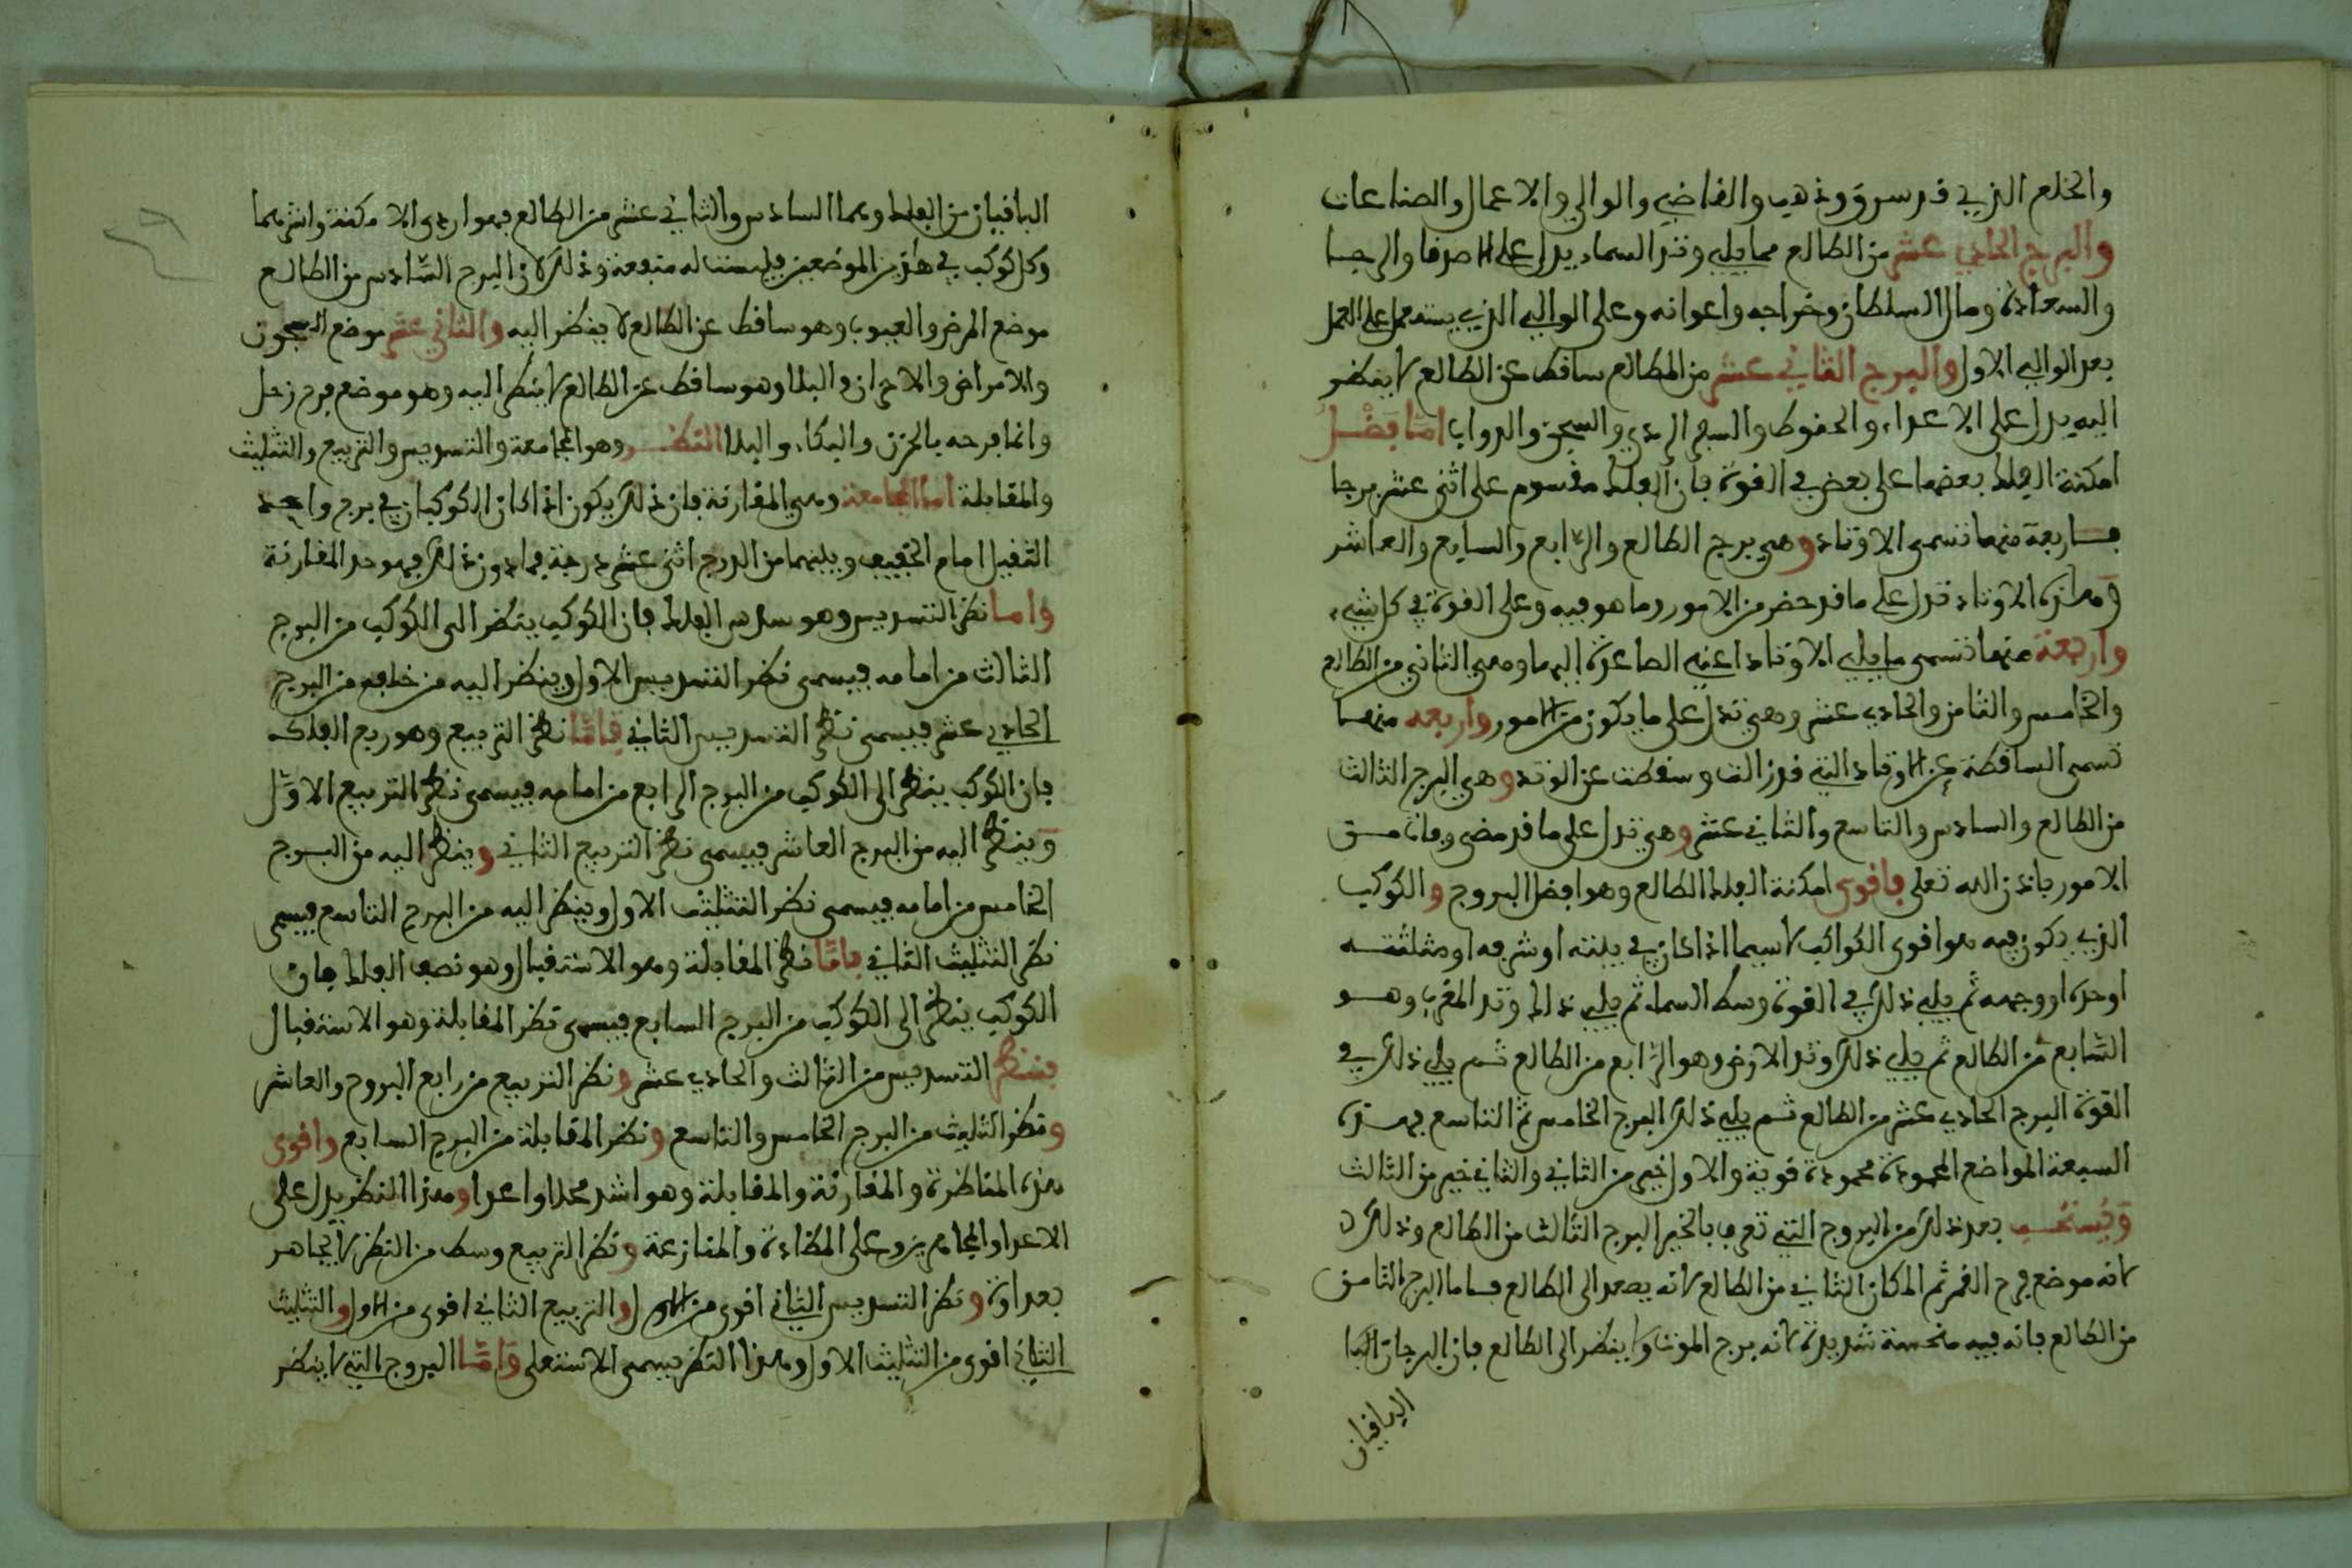 والخلع الذي قد سرق وذهب والقاضي والوالي والاعمال والصناعات
والبرج الحادي عشر من الطالع مما يلي وتد السماء يدل على الاصدقا والرجا
والسعادة ومال السلطان وخراجه واعوانه وعلى الوالي الذي يستعمل على العمل
بعد الوالي الاول والبرج الثاني عشر من الطالع ساقط عن الطالع لا ينظر
اليه يدل على الاعداء والسجن والدواب امّا فضل
امكنة الفلك بعضها على بعض في القوة فان الفلك مقسوم على اثنى عشر برجا
فاربعة منها تسمى الاوتاد وهي برج الطالع والرّابع والسابع والعاشر
وهذه الاوتاد تدل على ما قد حضر من الامور وما هو فيه وعلى القوة في كل شيء
واربعة منها تسمى ما يلي الاوتاد اعني الصاعدة اليها وهي الثاني من الطالع
والخامس والثامن والحادي عشر وهي تدل على ما يكون من الامور واربعه منها
تسمى الساقطة عن الاوتاد التي قد زالت وسقطت عن الوتد وهي البرج الثالث
من الطالع والسادس والتاسع والثاني عشر وهي تدل على ما قد مضى وفات من
الامور باذن الله تعلى فاقوى امكنة الفلك الطالع وهو افضل البروج والكوكب
الذي يكون فيه هو اقوى الكواكب لا سيما اذا كان في بيته او شرفه او مثلثته
او حده او وجهه ثم يلي ذلك في القوة وسط السماء ثم يلي ذلك وتد المغرب وهو
السّابع من الطالع ثم يلي ذلك وتد الارض وهو الرّابع من الطالع ثم يلي ذلك في
القوة البرج الحادي عشر من الطالع ثم يلي ذلك البرج الخامس ثم التاسع فهذه
السبعة المواضع المحمودة محمودة قوية والاول خير من الثاني والثاني خير من الثالث
ويستحب بعد ذلك من البروج التي تعرف بالخير البرج الثالث من الطالع وذلك
لانه موضع فرح القمر ثم المكان الثاني من الطالع لانه يصعد الى الطالع فاما البرج الثامن
من الطالع فانه فيه منحسة شديدة لانه برج الموت ولا ينظر الى الطالع فان البرجان البا
الباقيان
الباقيان من الفلك وهما السادس والثاني عشر من الطالع فهو اردى الامكنة واشرهما
وكل كوكب في هذين الموضعين فليست له منفعة وذلك لان البرج السّادس من الطالع
موضع المرض والعيوب وهو ساقط عن الطالع لا ينظر اليه والثاني عشر موضع السجون
والامراض والاحزان والبلا وهو ساقط عن الطالع لا ينظر اليه وهو موضع فرح زحل
وانما فرحه بالحزن والبكاء والبلا النظر وهو المجامعة والتسديس والتربيع والتثليث
والمقابلة اما المجامعة وهي المقارنة فان ذلك يكون اذا كان الكوكبان في برج واحد
الثقيل امام الخفيف وبينهما من الدرج اثنى عشر درجة فما دون ذلك فهو حد المقارنة
واما نظر التسديس وهو سدس الفلك فان الكوكب ينظر الى الكوكب من البرج
الثالث من امامه فيسمى نظر التسديس الاول وينظر اليه من خلفه من البرج
الحادي عشر فيسمى نظر التسديس الثاني فامّا نظر التربيع وهو ربع الفلك
فان الكوكب ينظر الى الكوكب من البرج الرابع من امامه فيسمى نظر التربيع الاوّل
وينظر اليه من البرج العاشر فيسمى نظر التربيع الثاني وينظر اليه من البرج
الخامس من امامه فيسمى نظر التثليث الاول وينظر اليه من البرج التاسع فيسمى
نظر التثليث الثاني فامّا نظر المقابلة وهو الاستقبال وهو نصف الفلك فان
الكوكب ينظر الى الكوكب من البرج السابع فيسمى نظر المقابلة وهو الاستقبال
فينظر التسديس من الثالث والحادي عشر ونظر التربيع من رابع البروج والعاشر
ونظر التثليث من البرج الخامس والتاسع ونظر المقابلة من البرج السابع واقوى
هذه المناظرة والمقارنة والمقابلة وهو اشد وهذا النظر يدل على
الاعدا وعلى المضادة والمنازعة ونظر التربيع وسط من النظر لا يجاهر
بعداوة ونظر التسديس الثاني اقوى من الاول والتربيع الثاني اقوى من الاول والتثليث
الثاني اقوى من التثليث الاول وهذا النظر يسمى الاستعلى وامّا البروج التي لا ينظر